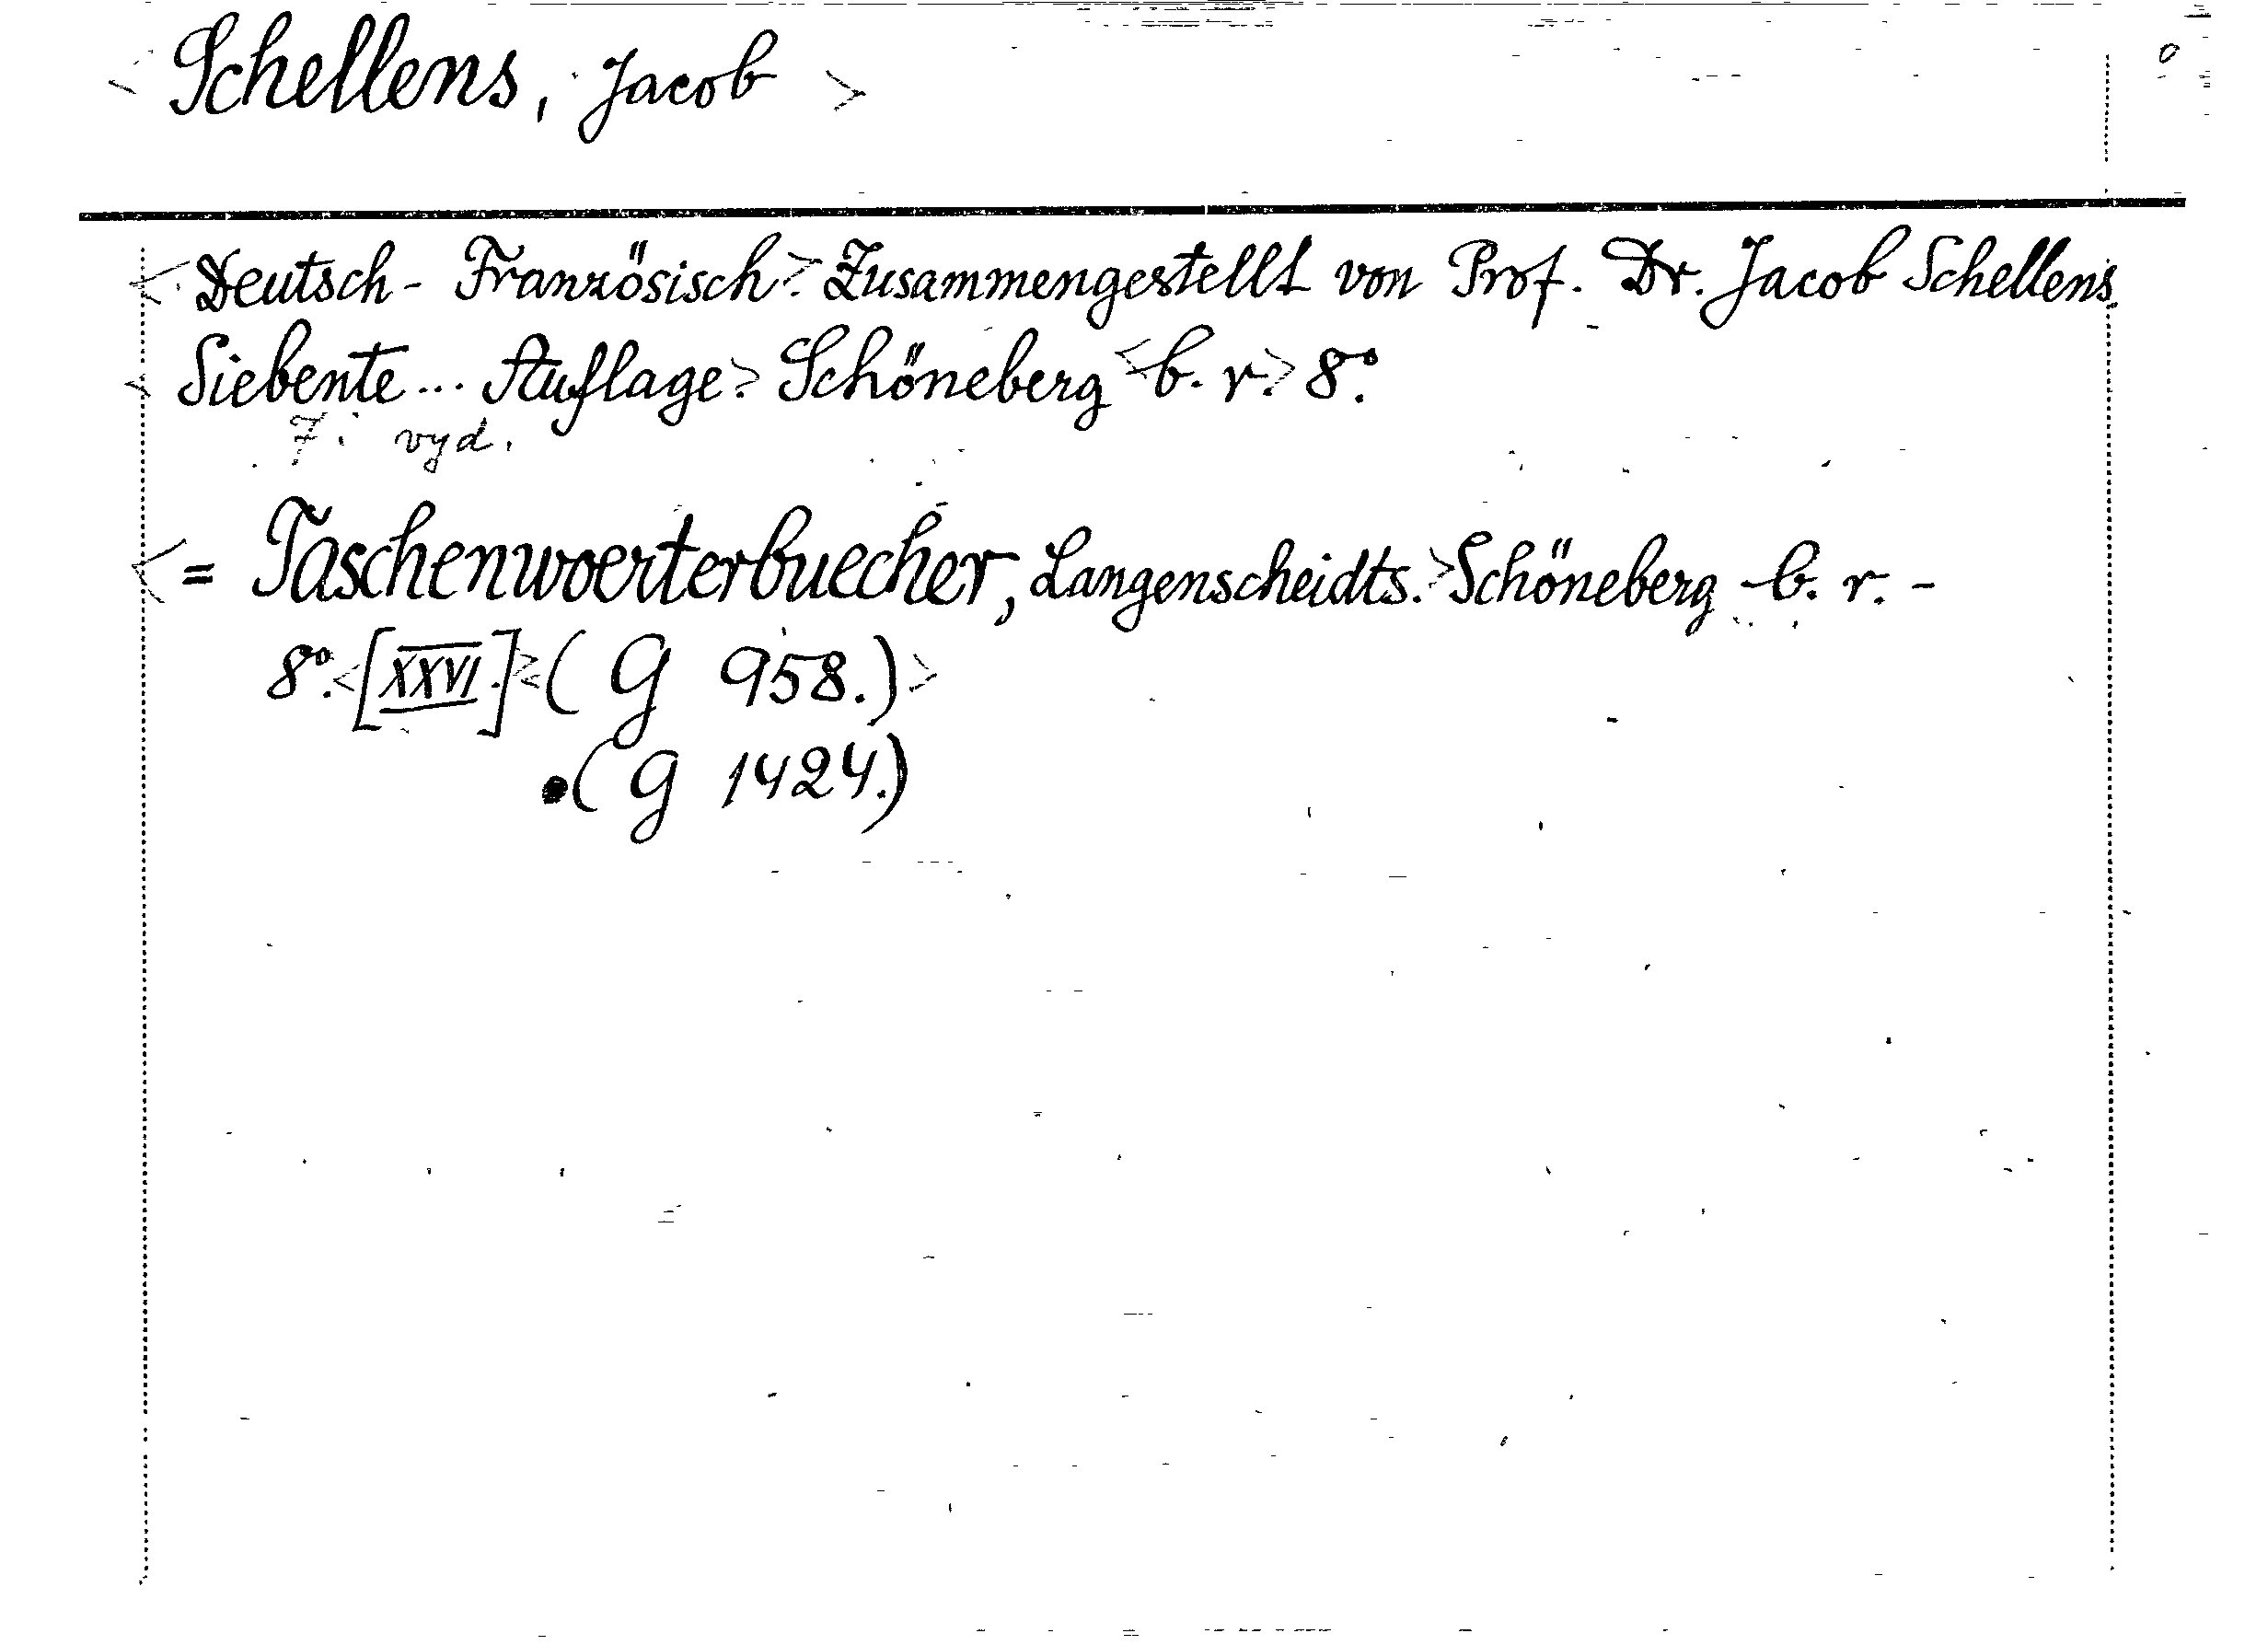 < Schellens, Jacob >
< Deutsch - Französisch > Zusammengestellt von Prof. Dr. Jacob Schellens.
< Siebente ... Auflage > Schöneberg < b. r. > 8°.
7. vyd.
< = Taschenwoerterbuecher, Langenscheidts. > Schöneberg b. r. -
8°. < [XXVI.] > < ( G 958.) >
•( G 1424.)